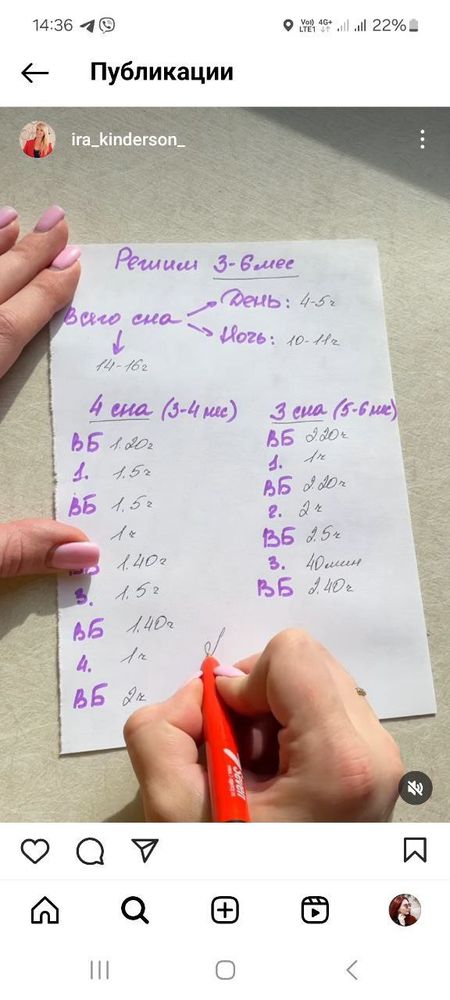 14:36 Vo)) 4G+ LTE1 22%
Публикации
ira_kinderson_
Режим 3-6 мес
Всего сна
День: 4-5ч
Ночь: 10-11ч
14-16ч
4 сна (3-4 мес)
ВБ 1.20ч
1. 1,5ч
ВБ 1,5ч
1ч
ВБ 1.40ч
3. 1,5ч
ВБ 1.40ч
4. 1ч
ВБ 2ч
3 сна (5-6 мес)
ВБ 2.20ч
1. 1ч
ВБ 2.20ч
2. 2ч
ВБ 2.5ч
3. 40мин
ВБ 2.40ч